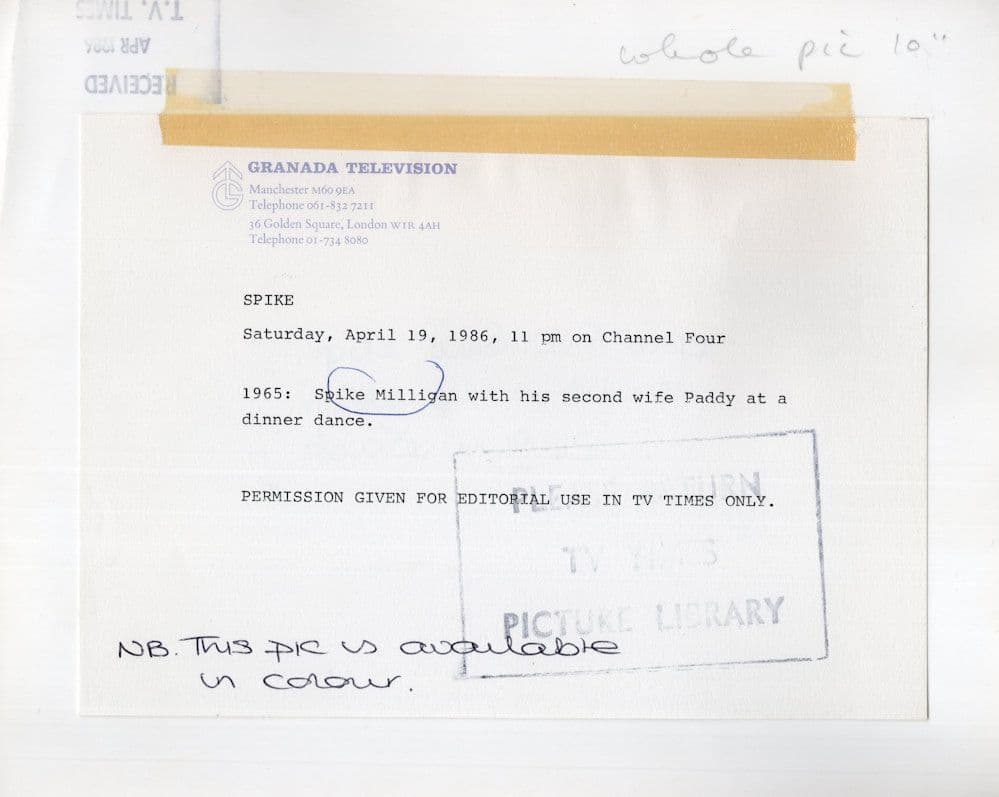 T.V. TIMES
APR 1986
RECEIVED
whole pic 10"
GRANADA TELEVISION
Manchester M60 9EA
Telephone 061-832 7211
36 Golden Square, London W1R 4AH
Telephone 01-734 8080
SPIKE
Saturday, April 19, 1986, 11 pm on Channel Four
1965: Spike Milligan with his second wife Paddy at a
dinner dance.
PERMISSION GIVEN FOR EDITORIAL USE IN TV TIMES ONLY.
PLEASE RETURN
TV TIMES
PICTURE LIBRARY
NB. This pic is available
in colour.